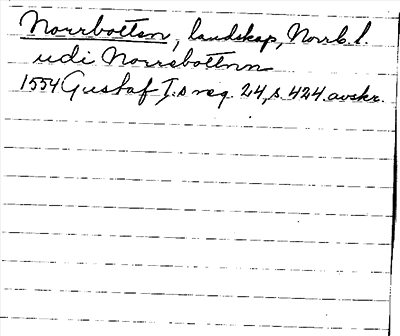 Norrbotten, landskap, Norrb. l.
udi Norrebottnn
1554 Gustaf I:s reg. 24, s. 424 avskr.